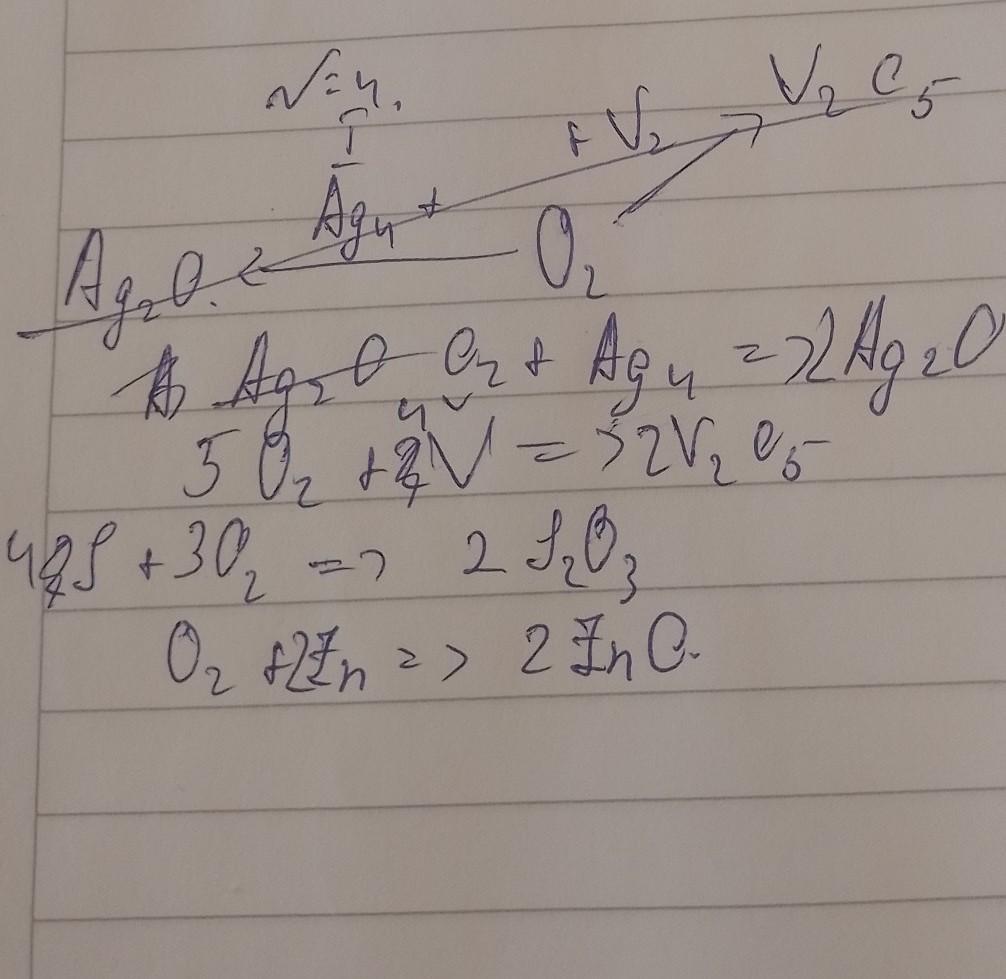 √=4.
I
Ag₄ +
+ V₂
V₂O₅
Ag₂O.
O₂
O₂ + Ag₄ => 2Ag₂O
5O₂ + 4V => 2V₂O₅
4S + 3O₂ => 2S₂O₃
O₂ + 2Zn => 2ZnO.